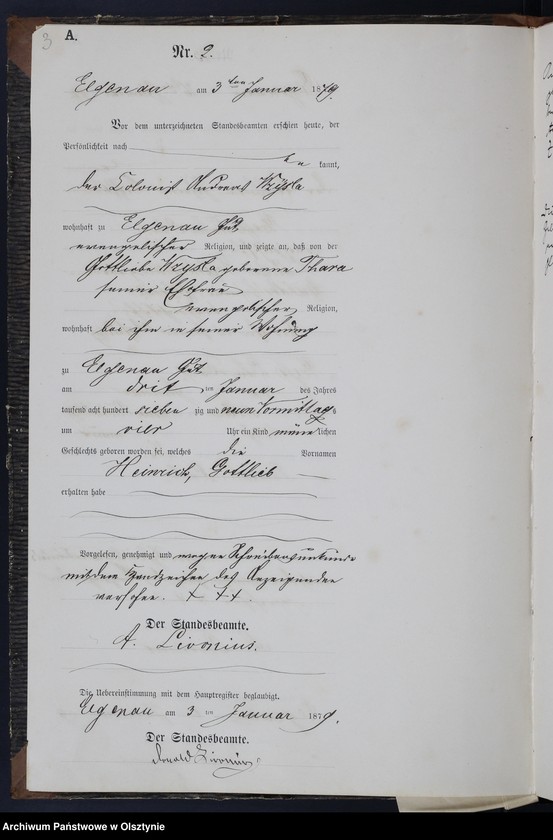 3
A.
Nr. 2.
Elgenau am 3ten Januar 1879.
Vor dem unterzeichneten Standesbeamten erschien heute, der
Persönlichkeit nach
be kannt,
der Colonist Andreas Wzysla
wohnhaft zu Elgenau Gut
evangelischer Religion, und zeigte an, daß von der
Gottliebe Wzysla geborene Thara
seiner Ehefrau
evangelischer Religion,
wohnhaft bei ihm in seiner Wohnung
zu Elgenau Gut
am drit ten Januar des Jahres
tausend acht hundert sieben zig und neun Vormittags
um vier Uhr ein Kind männlichen
Geschlechts geboren worden sei, welches die Vornamen
Heinrich, Gottlieb
erhalten habe
Vorgelesen, genehmigt und wegen Schreibensunkunde
mit dem Handzeichen des Anzeigenden
versehen. + + +.
Der Standesbeamte.
A. Livonius.
Die Uebereinstimmung mit dem Hauptregister beglaubigt.
Elgenau am 3 ten Januar 1879.
Der Standesbeamte.
Livonius
Archiwum Państwowe w Olsztynie